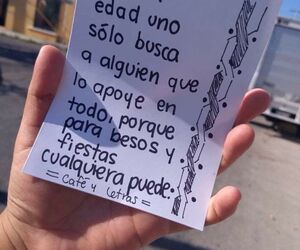 edad uno
sólo busca
a alguien que
lo apoye en
todo, porque
para besos y
fiestas
cualquiera puede.
= Café y Letras =